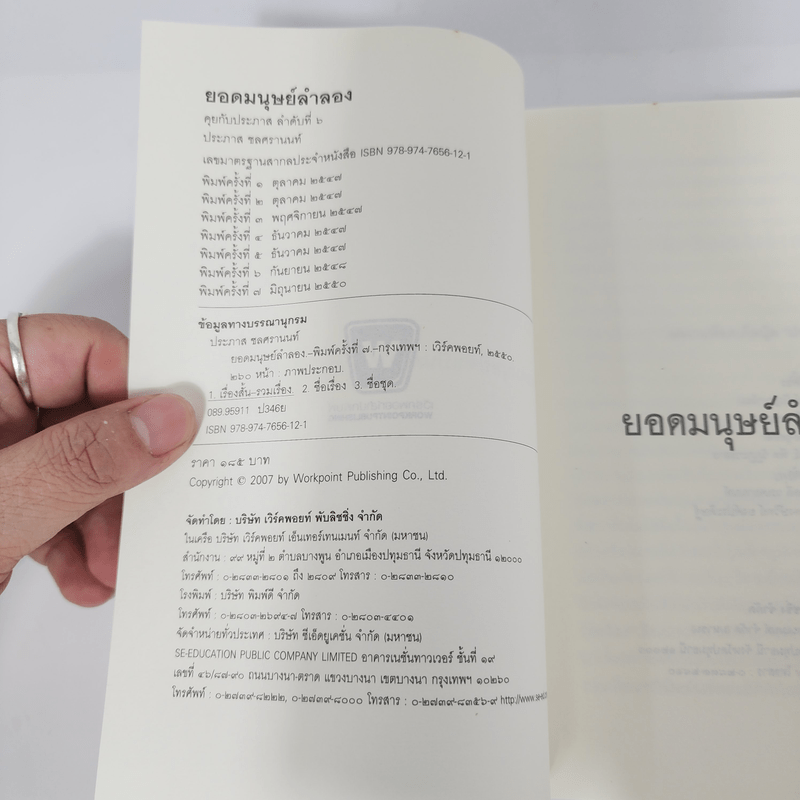 ยอดมนุษย์ลำลอง
คุยกับประภาส ลำดับที่ ๖
ประภาส ชลศรานนท์
เลขมาตรฐานสากลประจำหนังสือ ISBN 978-974-7656-12-1
พิมพ์ครั้งที่ ๑ ตุลาคม ๒๕๔๗
พิมพ์ครั้งที่ ๒ ตุลาคม ๒๕๔๗
พิมพ์ครั้งที่ ๓ พฤศจิกายน ๒๕๔๗
พิมพ์ครั้งที่ ๔ ธันวาคม ๒๕๔๗
พิมพ์ครั้งที่ ๕ ธันวาคม ๒๕๔๗
พิมพ์ครั้งที่ ๖ กันยายน ๒๕๔๘
พิมพ์ครั้งที่ ๗ มิถุนายน ๒๕๕๐
ข้อมูลทางบรรณานุกรม
ประภาส ชลศรานนท์
ยอดมนุษย์ลำลอง.--พิมพ์ครั้งที่ ๗.--กรุงเทพฯ : เวิร์คพอยท์, ๒๕๕๐.
๒๖๐ หน้า : ภาพประกอบ.
1. เรื่องสั้น--รวมเรื่อง. 2. ชื่อเรื่อง 3. ชื่อชุด.
089.95911 ป346ย
ISBN 978-974-7656-12-1
ราคา ๑๘๕ บาท
Copyright © 2007 by Workpoint Publishing Co., Ltd.
จัดทำโดย : บริษัท เวิร์คพอยท์ พับลิชชิ่ง จำกัด
ในเครือ บริษัท เวิร์คพอยท์ เอ็นเทอร์เทนเมนท์ จำกัด (มหาชน)
สำนักงาน : ๙๙ หมู่ที่ ๒ ตำบลบางพูน อำเภอเมืองปทุมธานี จังหวัดปทุมธานี ๑๒๐๐๐
โทรศัพท์ : ๐-๒๘๓๓-๒๘๐๑ ถึง ๒๘๐๙ โทรสาร : ๐-๒๘๓๓-๒๘๑๐
โรงพิมพ์ : บริษัท พิมพ์ดี จำกัด
โทรศัพท์ : ๐-๒๘๐๓-๒๖๙๔-๗ โทรสาร : ๐-๒๘๐๓-๔๔๐๑
จัดจำหน่ายทั่วประเทศ : บริษัท ซีเอ็ดยูเคชั่น จำกัด (มหาชน)
SE-EDUCATION PUBLIC COMPANY LIMITED อาคารเนชั่นทาวเวอร์ ชั้นที่ ๑๙
เลขที่ ๔๖/๘๗-๙๐ ถนนบางนา-ตราด แขวงบางนา เขตบางนา กรุงเทพฯ ๑๐๒๖๐
โทรศัพท์ : ๐-๒๗๓๙-๘๒๒๒, ๐-๒๗๓๙-๘๐๐๐ โทรสาร : ๐-๒๗๓๙-๘๓๕๖-๙ http://www.se-ed
ยอดมนุษย์ลำ